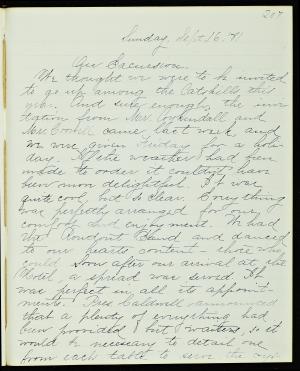 207
Sunday, Sept 16. '91
Our Excursion.
We thought we were to be invited
to go up among the Catskills this
year. And sure enough, the invi-
tation from Mr. Coykendall and
Mrs. came last week and
we were given Friday for a holi-
day. If the weather had been
made to order it couldn't have
been more delightful. It was
quite cool, but so clear. Everything
was perfectly arranged for our
comfort and enjoyment. We had
the Rondout Band and danced
to our hearts content – those who
could. Soon after our arrival at the
Hotel, a spread was served. It
was perfect in all its appoint-
ments. Pres Caldwell announced
that a plenty of everything had
been provided but waiters, so it
would be necessary to detail one
from each table to serve the